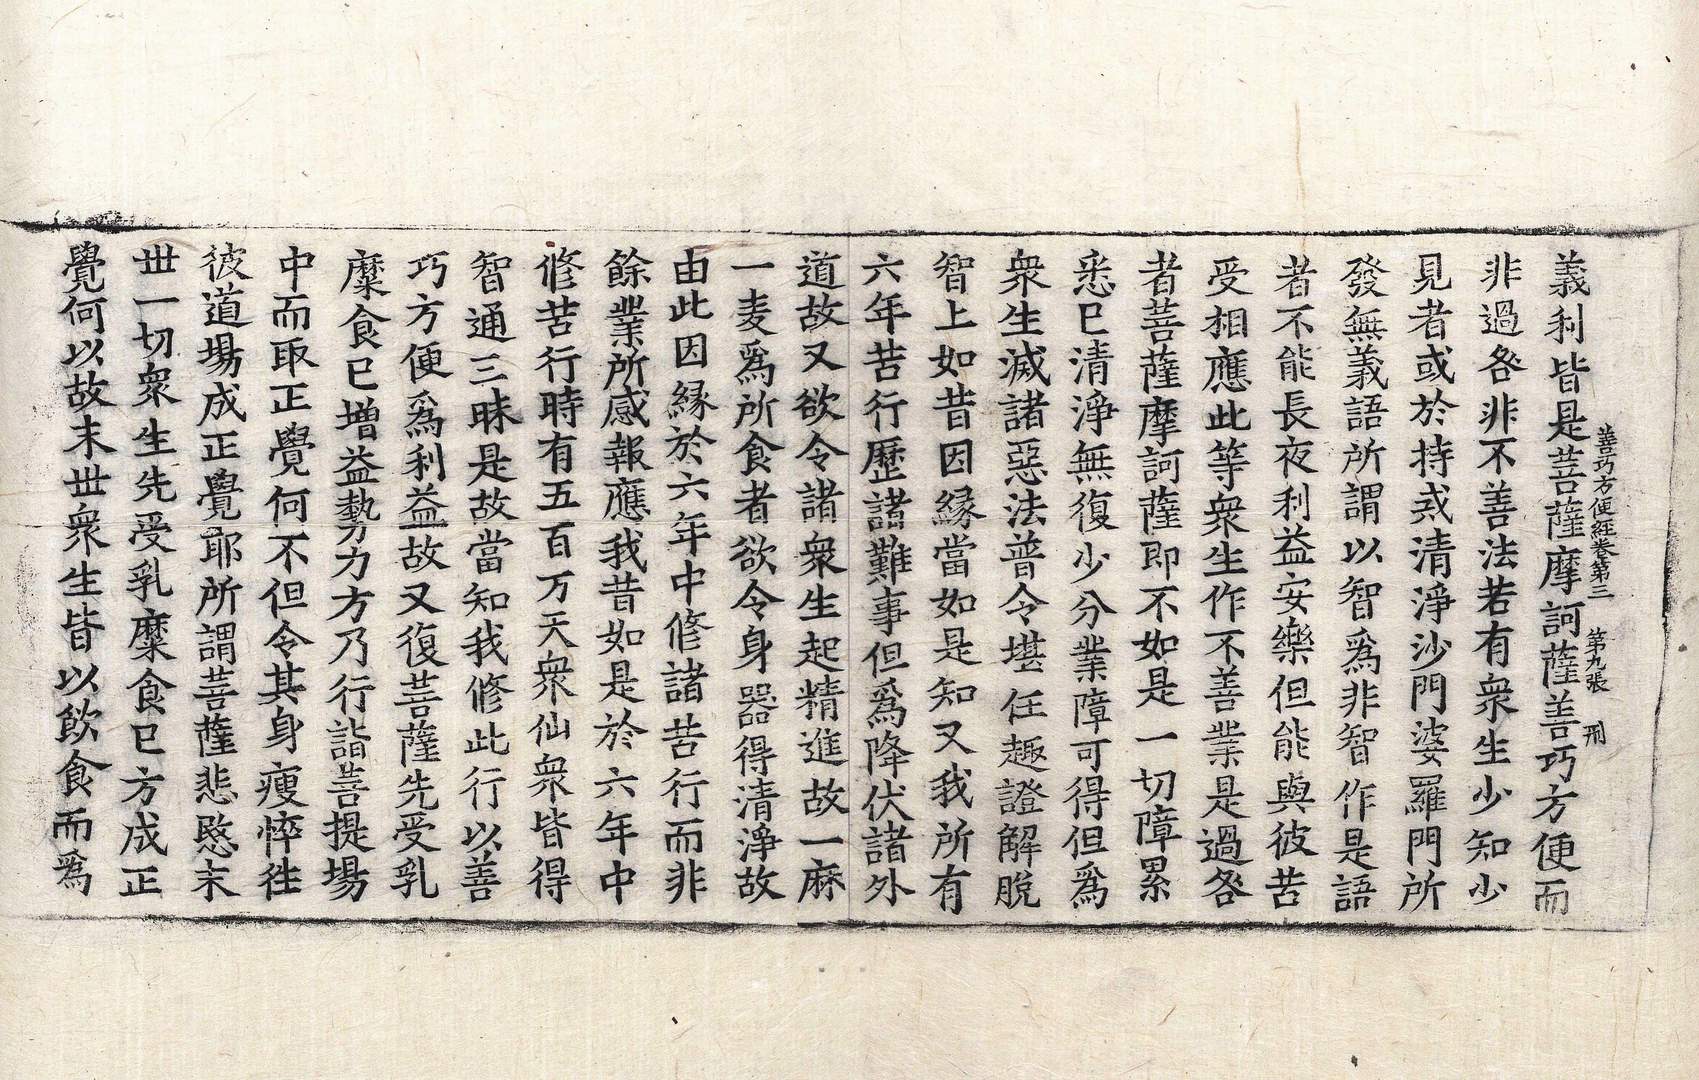 善巧方便經卷第三　第九張　刑
義利皆是菩薩摩訶薩善巧方便而
非過咎非不善法若有衆生少知少
見者或於持戒清淨沙門婆羅門所
發無義語所謂以智爲非智作是語
者不能長夜利益安樂但能與彼苦
受相應此等衆生作不善業是過咎
者菩薩摩訶薩即不如是一切障累
悉已清淨無復少分業障可得但爲
衆生滅諸惡法普令堪任趣證解脫
智上如昔因緣當如是知又我所有
六年苦行歷諸難事但爲降伏諸外
道故又欲令諸衆生起精進故一麻
一麦爲所食者欲令身器得清淨故
由此因緣於六年中修諸苦行而非
餘業所感報應我昔如是於六年中
修苦行時有五百万天衆仙衆皆得
智通三昧是故當知我修此行以善
巧方便爲利益故又復菩薩先受乳
糜食已增益勢力方乃行詣菩提場
中而取正覺何不但令其身瘦悴往
彼道場成正覺耶所謂菩薩悲愍末
世一切衆生先受乳糜食已方成正
覺何以故末世衆生皆以飲食而爲